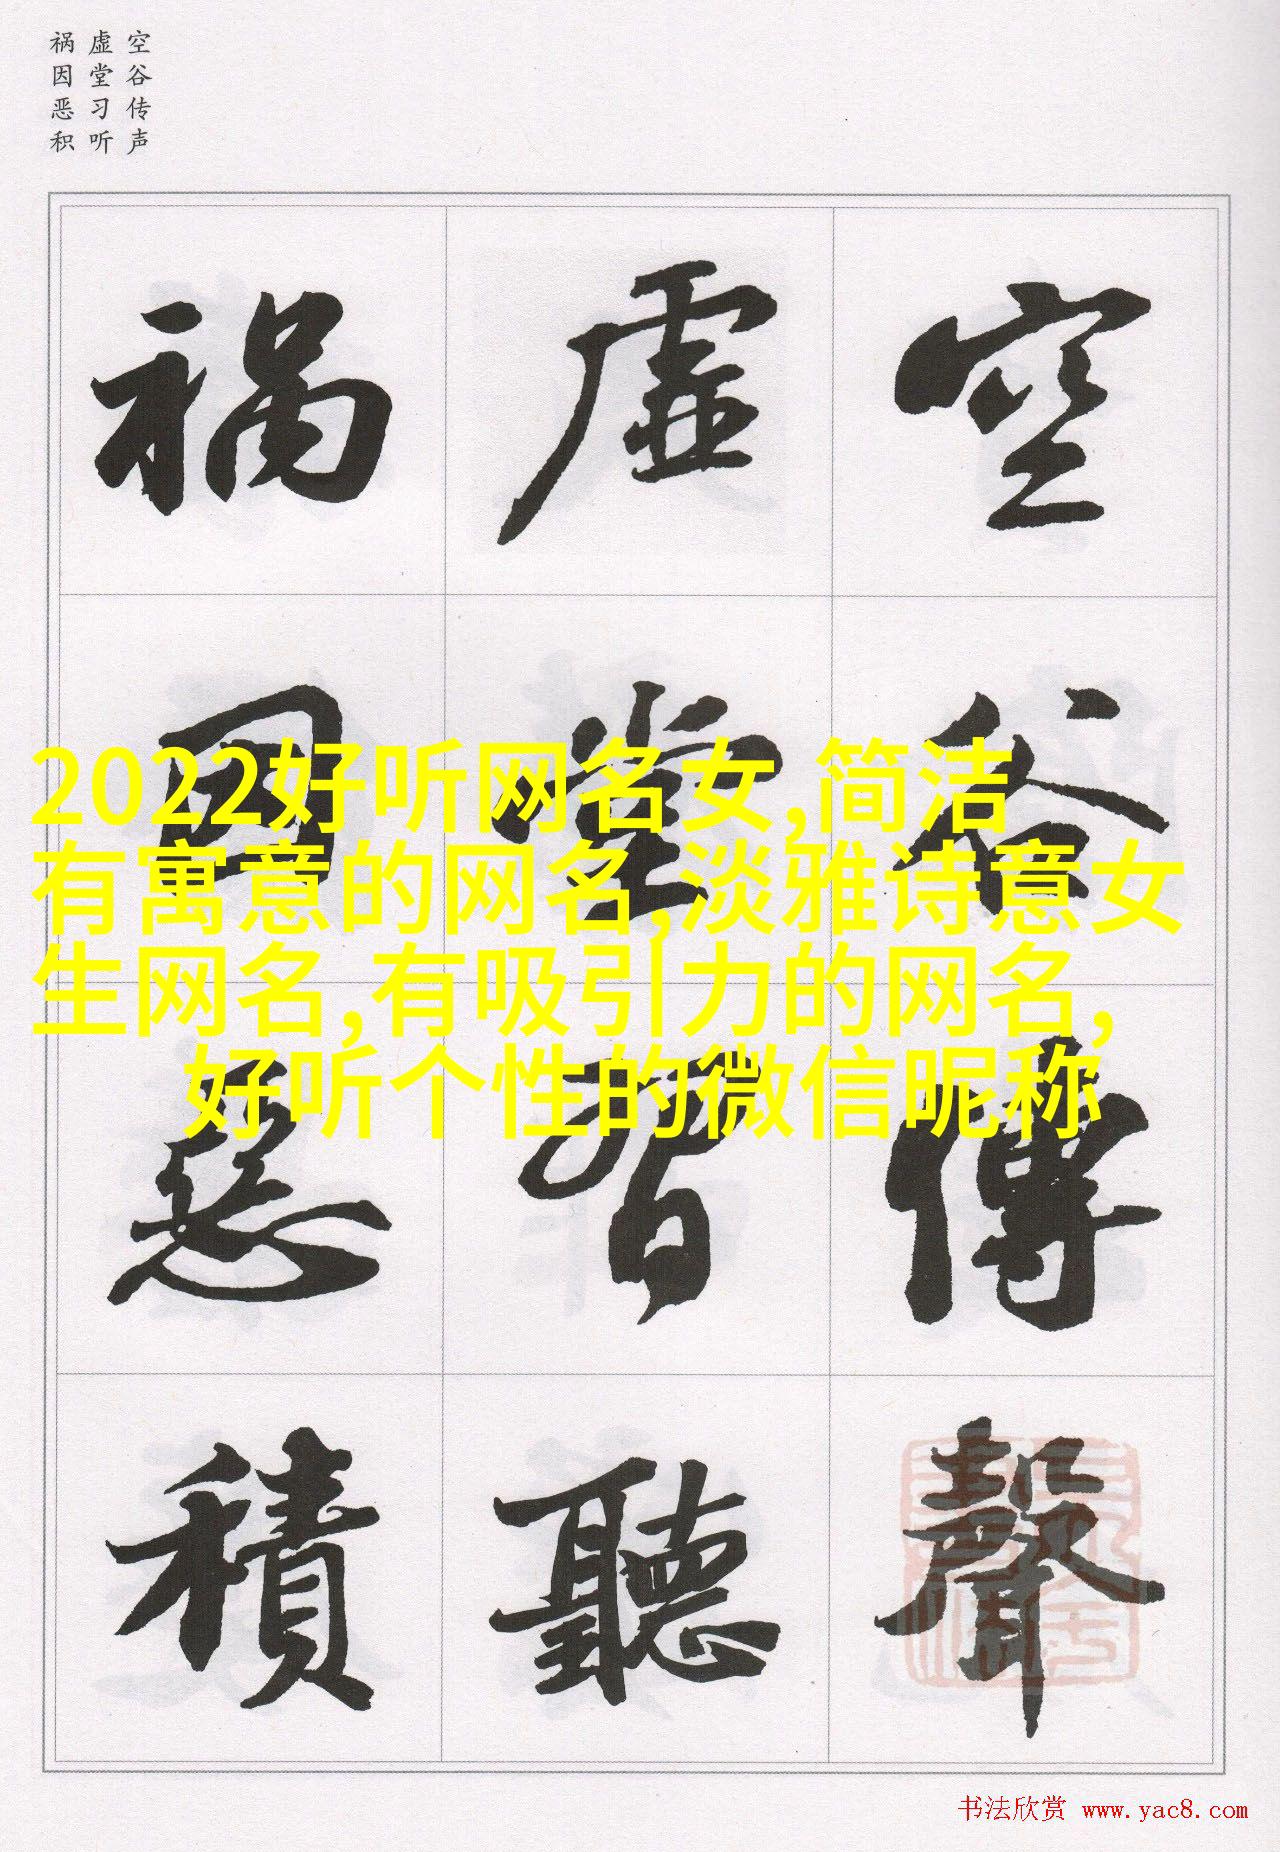 空谷传声
虚堂习听
祸因恶积
空谷傳聲
虚堂習聽
禍因惡積
2022好听网名女,简洁
有寓意的网名,淡雅诗意女
生网名,有吸引力的网名,
好听个性的微信昵称
书法欣赏 www.yac8.com